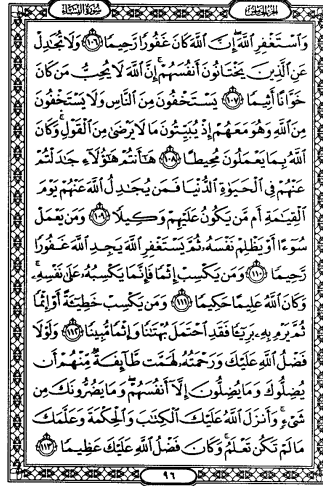 الجزء الخامس سورة النساء
وَٱسۡتَغۡفِرِ ٱللَّهَۖ إِنَّ ٱللَّهَ كَانَ غَفُورٗا رَّحِيمٗا ١٠٦ وَلَا تُجَٰدِلۡ
عَنِ ٱلَّذِينَ يَخۡتَانُونَ أَنفُسَهُمۡۚ إِنَّ ٱللَّهَ لَا يُحِبُّ مَن كَانَ
خَوَّانًا أَثِيمٗا ١٠٧ يَسۡتَخۡفُونَ مِنَ ٱلنَّاسِ وَلَا يَسۡتَخۡفُونَ
مِنَ ٱللَّهِ وَهُوَ مَعَهُمۡ إِذۡ يُبَيِّتُونَ مَا لَا يَرۡضَىٰ مِنَ ٱلۡقَوۡلِۚ وَكَانَ
ٱللَّهُ بِمَا يَعۡمَلُونَ مُحِيطًا ١٠٨ هَٰٓأَنتُمۡ هَٰٓؤُلَآءِ جَٰدَلۡتُمۡ
عَنۡهُمۡ فِي ٱلۡحَيَوٰةِ ٱلدُّنۡيَا فَمَن يُجَٰدِلُ ٱللَّهَ عَنۡهُمۡ يَوۡمَ
ٱلۡقِيَٰمَةِ أَم مَّن يَكُونُ عَلَيۡهِمۡ وَكِيلٗا ١٠٩ وَمَن يَعۡمَلۡ
سُوٓءًا أَوۡ يَظۡلِمۡ نَفۡسَهُۥ ثُمَّ يَسۡتَغۡفِرِ ٱللَّهَ يَجِدِ ٱللَّهَ غَفُورٗا
رَّحِيمٗا ١١٠ وَمَن يَكۡسِبۡ إِثۡمٗا فَإِنَّمَا يَكۡسِبُهُۥ عَلَىٰ نَفۡسِهِۦۚ
وَكَانَ ٱللَّهُ عَلِيمًا حَكِيمٗا ١١١ وَمَن يَكۡسِبۡ خَطِيٓـَٔةً أَوۡ إِثۡمٗا
ثُمَّ يَرۡمِ بِهِۦ بَرِيٓـٔٗا فَقَدِ ٱحۡتَمَلَ بُهۡتَٰنٗا وَإِثۡمٗا مُّبِينٗا ١١٢ وَلَوۡلَا
فَضۡلُ ٱللَّهِ عَلَيۡكَ وَرَحۡمَتُهُۥ لَهَمَّت طَّآئِفَةٞ مِّنۡهُمۡ أَن
يُضِلُّوكَ وَمَا يُضِلُّونَ إِلَّآ أَنفُسَهُمۡۖ وَمَا يَضُرُّونَكَ مِن
شَيۡءٖۚ وَأَنزَلَ ٱللَّهُ عَلَيۡكَ ٱلۡكِتَٰبَ وَٱلۡحِكۡمَةَ وَعَلَّمَكَ
مَا لَمۡ تَكُن تَعۡلَمُۚ وَكَانَ فَضۡلُ ٱللَّهِ عَلَيۡكَ عَظِيمٗا ١١٣
٩٦